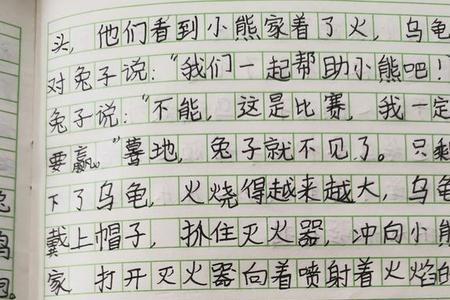 头，他们看到小熊家着了火，乌龟
对兔子说："我们一起帮助小熊吧！
兔子说："不能，这是比赛，我一定
要赢。"蓦地，兔子就不见了。只剩
下了乌龟，火烧得越来越大，乌龟
戴上帽子，抓住灭火器，冲向小熊
家 打开灭火器向着喷射着火焰的